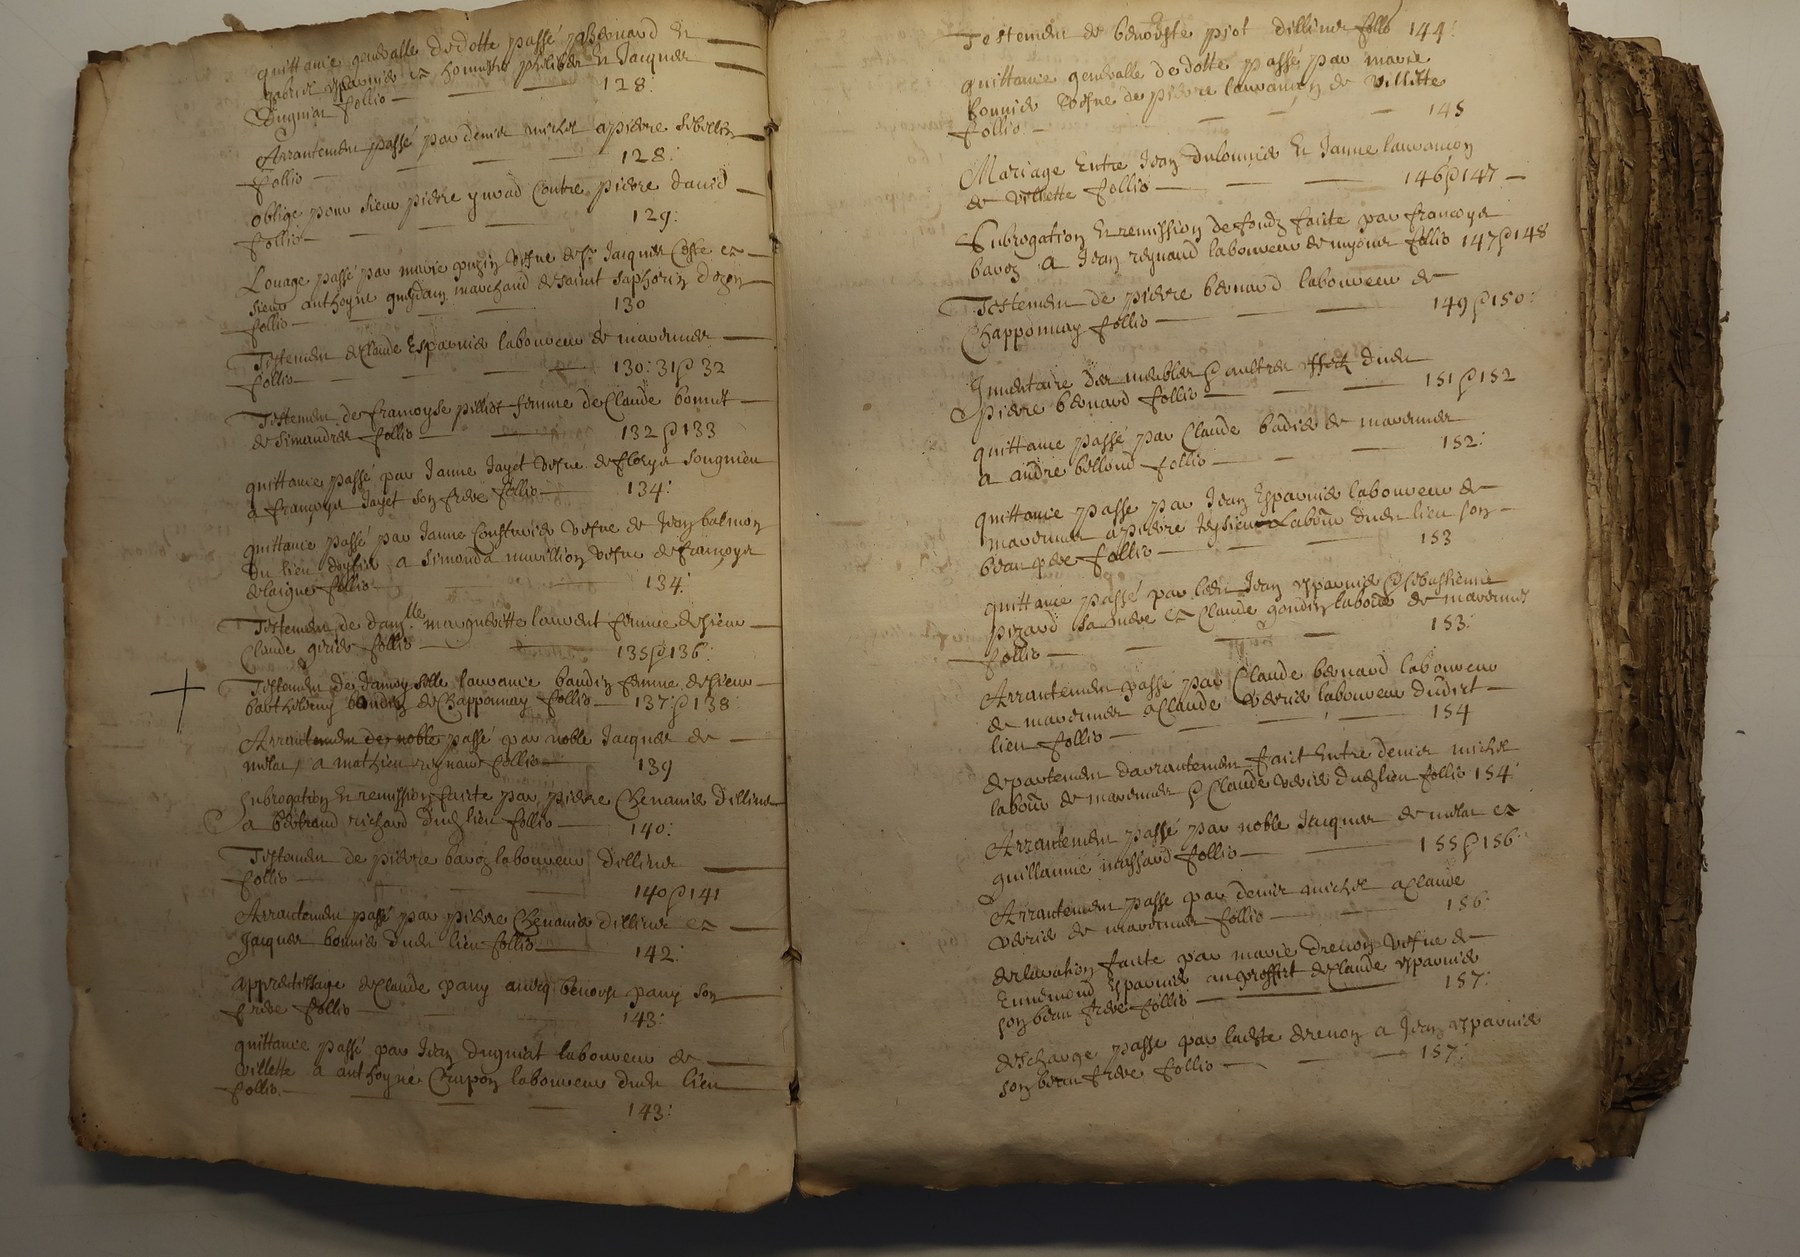 quittance generalle de dotte passé p Bernard et
gabriel esparnier et honneste philiber et Jacques
Dugniat follio 128:
Arrantement passé par denis michel a pierre
follio 128:
oblige pour sieur pierre ynrad Contre pierre david
follio 129:
Louage passé par marie vefve de Sr Jacques Coste et
sieur anthoyne marchand de saint saphorin dozon
follio 130
Testement de Claude Esparnier laboureur de marennes
follio 130: 31 & 32
Testement de francoyse pilliot femme de Claude bonnet
de Simandres follio 132 & 133
quittance passé par Janne Jayet vefve de fleury songnieu
a françoys Jayet son frere follio 134:
quittance passé par Janne vefve de Jean balmon
du lieu a Simonda murillion vefve de françoys
delaigue follio 134:
Testement de dam.lle margueritte laurent femme de sieur
Claude girier follio 135 & 136:
Testement de damoyselle laurance baudin femme de sieur
barthelemy de Chapponnay follio 137 & 138:
Arrantement de noble passé par noble Jacques de
milat, a mathieu reynaud follio 139
Subrogation et remission faicte par pierre Chenavier dillins
a bertrand richard dudt lieu follio 140:
Testement de pierre baroz laboureur dillins
follio 140 & 141
Arrantement passé par pierre Chenavier dillins et
Jacques bonnier dudt lieu follio 142:
apprentissage de Claude pany avecq benoist pany son
frere follio 143:
quittance passé par Jean dugniat laboureur de
villette a anthoyne Crupon laboureur dudt lieu
follio 143:
Testement de benoiste piot dillins follio 144:
quittance generalle de dotte passé par marie
bonnier vefve de pierre laurancon de villette
follio 145
Mariage Entre Jean dulonnier et Janne laurancon
de villette follio 146 & 147
Subrogation et remission de fondz faicte par francoys
baroz a Jean reynaud laboureur de myons follio 147 & 148
Testement de pierre bernard laboureur de
Chapponnay follio 149 & 150:
Inventaire des meubles & aultres effectz dudt
pierre bernard follio 151 & 152
quittance passé par Claude badier de marennes
a andre bellond follio 152:
quittance passe par Jean Esparnier laboureur de
marennes a pierre laboúr dudt lieu son
beau pere follio 153
quittance passé par ledt Jean esparnier & sebastienne
pizard sa mere et Claude gondin laboúr de marennes
follio 153:
Arrantement passé par Claude bernard laboureur
de marennes a Claude verier laboureur dudict
lieu follio 154
departement darrantement faict Entre denis michel
laboúr de marennes & Claude verier dudt lieu follio 154:
Arrantement passé par noble Jacques de milat et
guillaume mussard follio 155 & 156:
Arrantement passe par denis michel a Claude
verier de marennes follio 156:
declaration faicte par marie drevon vefve de
Ennemond Esparnier au proffict de Claude esparnier
son beau frere follio 157:
descharge passe par ladte drevon a Jean esparnier
son beau frere follio 157: